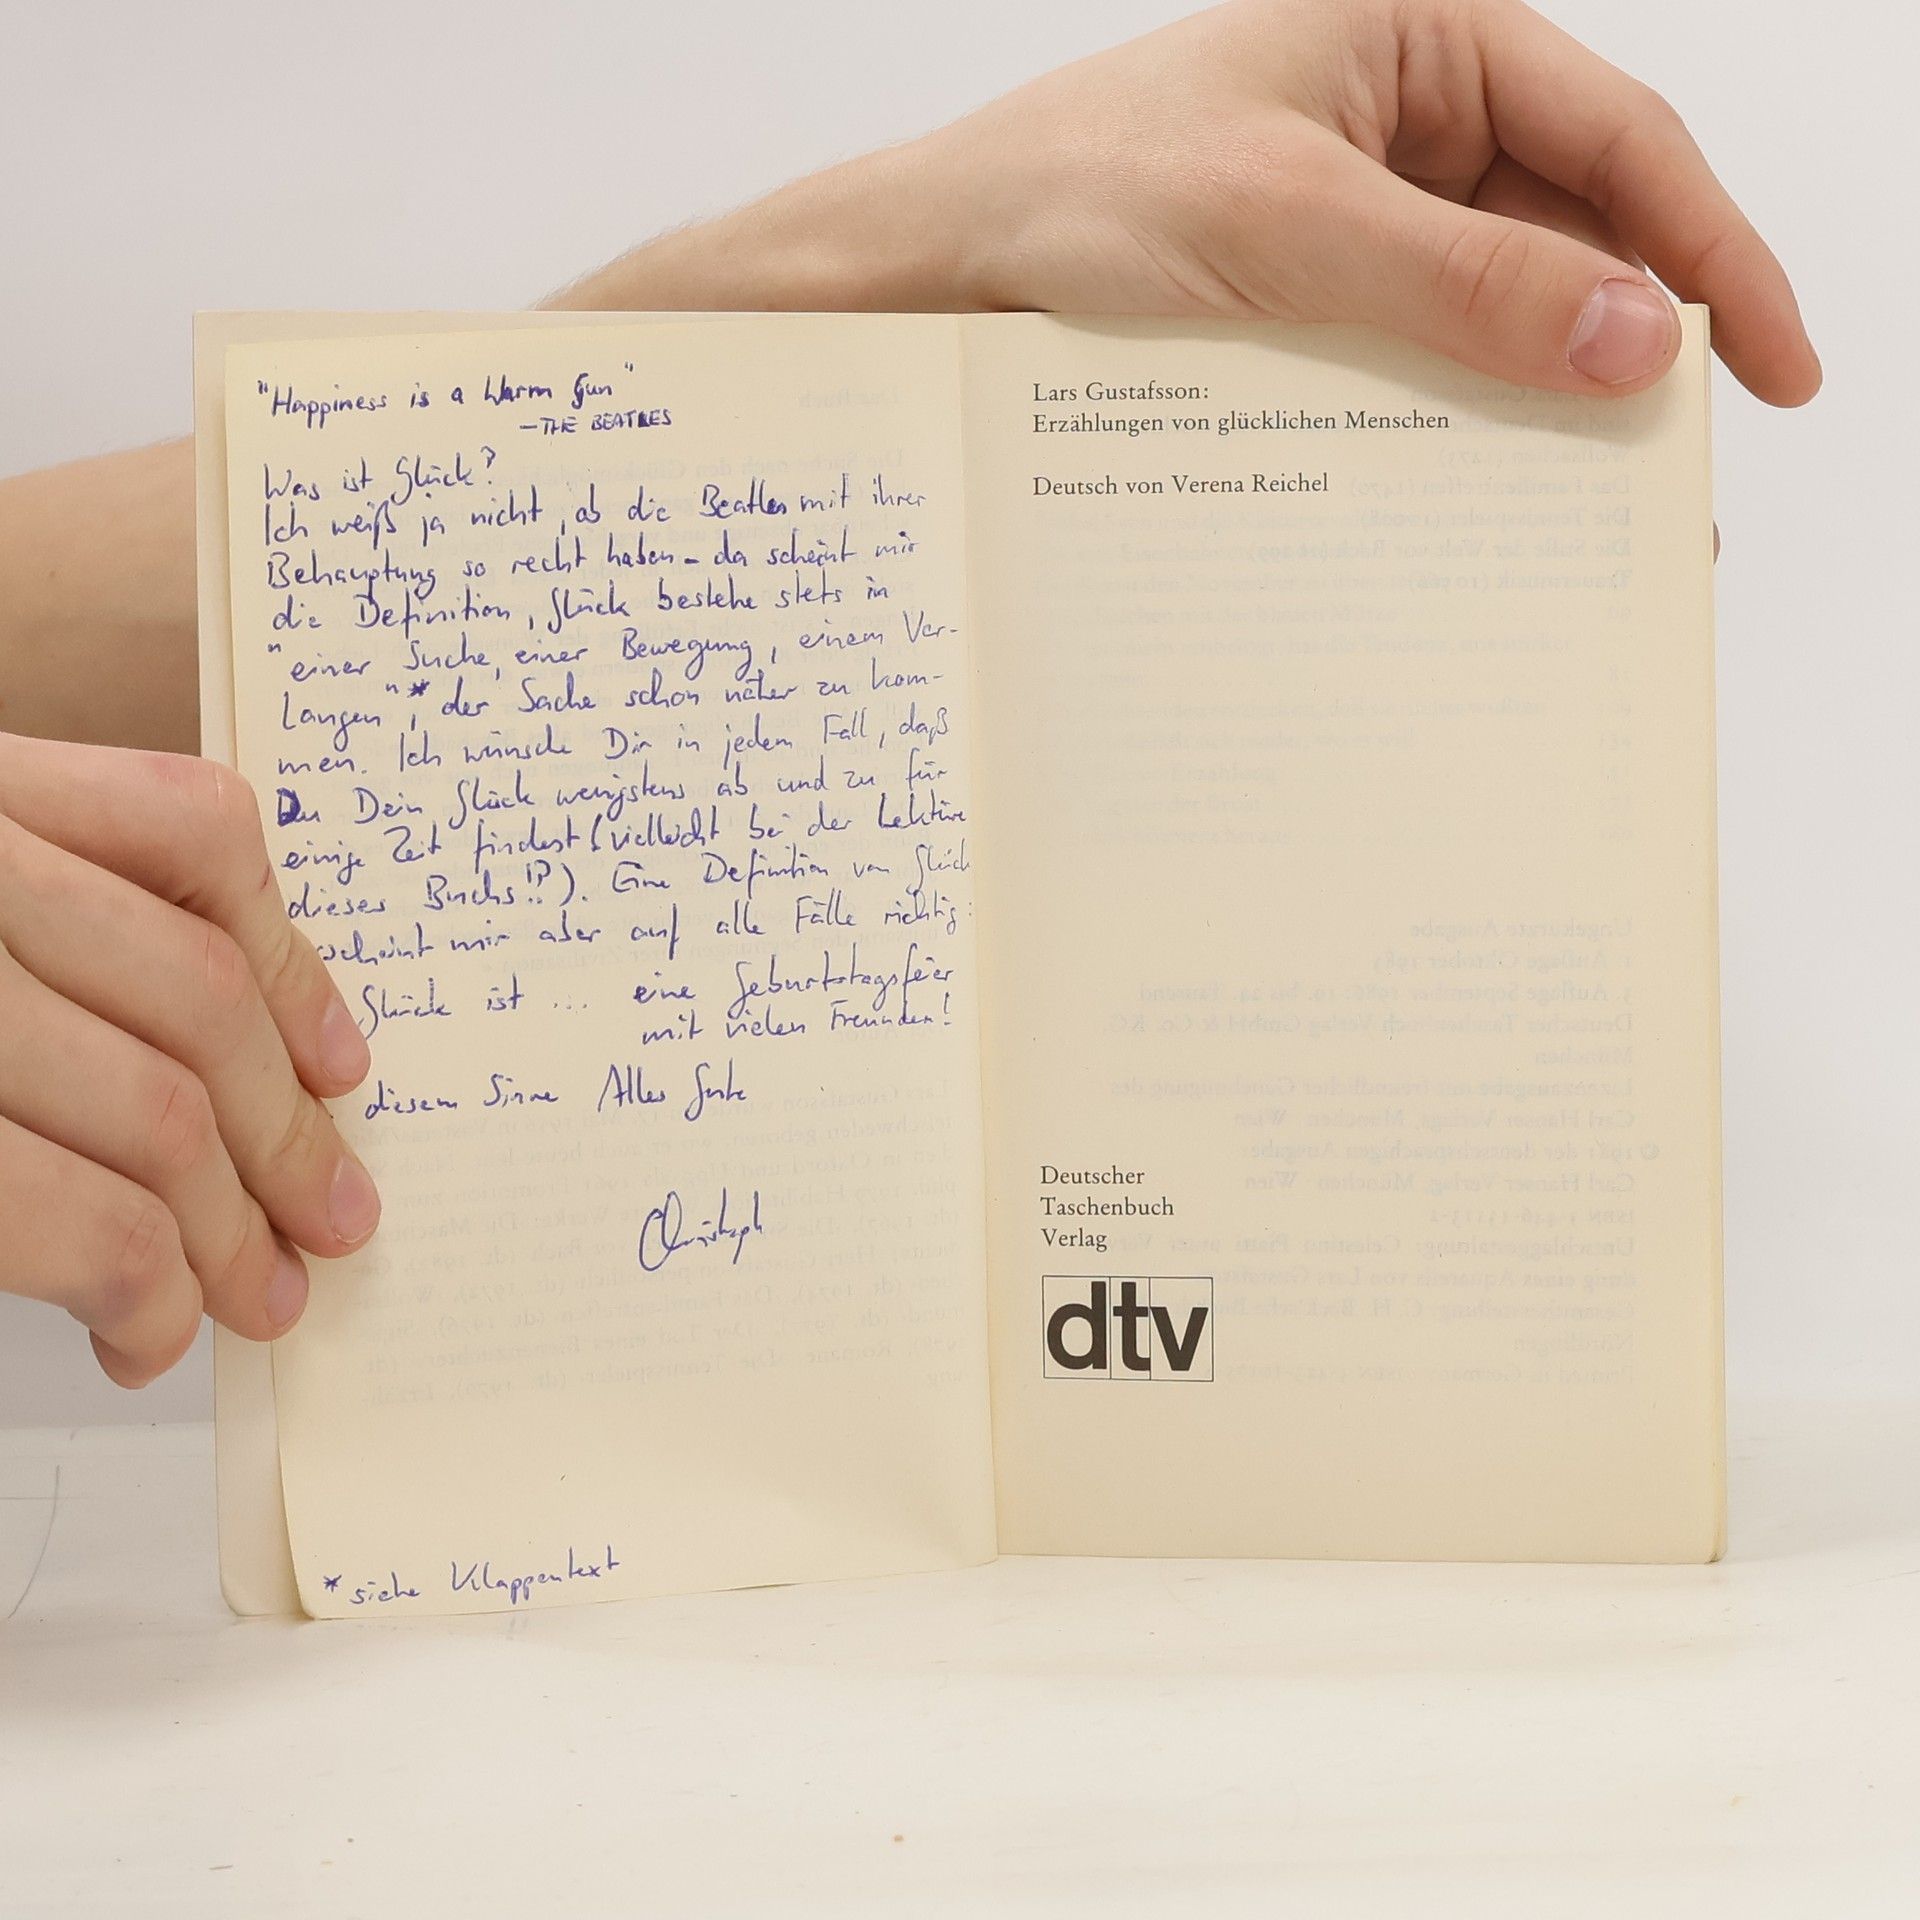 "Happiness is a Warm Gun"
- THE BEATLES
Was ist Glück?
Ich weiß ja nicht, ob die Beatles mit ihrer
Behauptung so recht haben - da scheint mir
die Definition, Glück bestehe stets in
"einer Suche, einer Bewegung, einem Ver-
langen"*, der Sache schon näher zu kom-
men. Ich wünsche Dir in jedem Fall, daß
Du Dein Glück wenigstens ab und zu für
einige Zeit findest (vielleicht bei der Lektüre
dieses Buchs!?). Eine Definition von Glück
scheint mir aber auf alle Fälle richtig:
Glück ist ... eine Geburtstagsfeier
mit vielen Freunden!
diesem Sinne Alles Gute
Christoph
* siehe Klappentext
Lars Gustafsson:
Erzählungen von glücklichen Menschen
Deutsch von Verena Reichel
Deutscher
Taschenbuch
Verlag
dtv